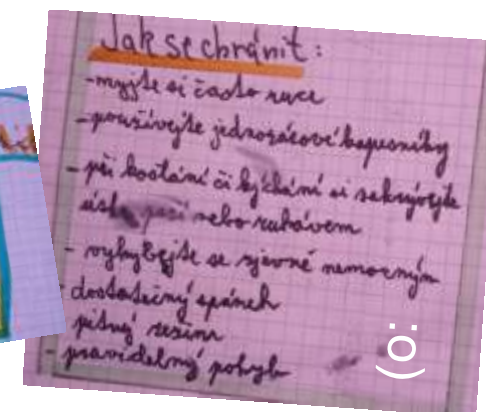 Jak se chránit:
-myjte si často ruce
-používejte jednorázové kapesníky
-při kašlání či kýchání si zakrývejte
ústa paží nebo rukávem
- vyhýbejte se zjevně nemocným
- dostatečný spánek
- pitný režim
- pravidelný pohyb